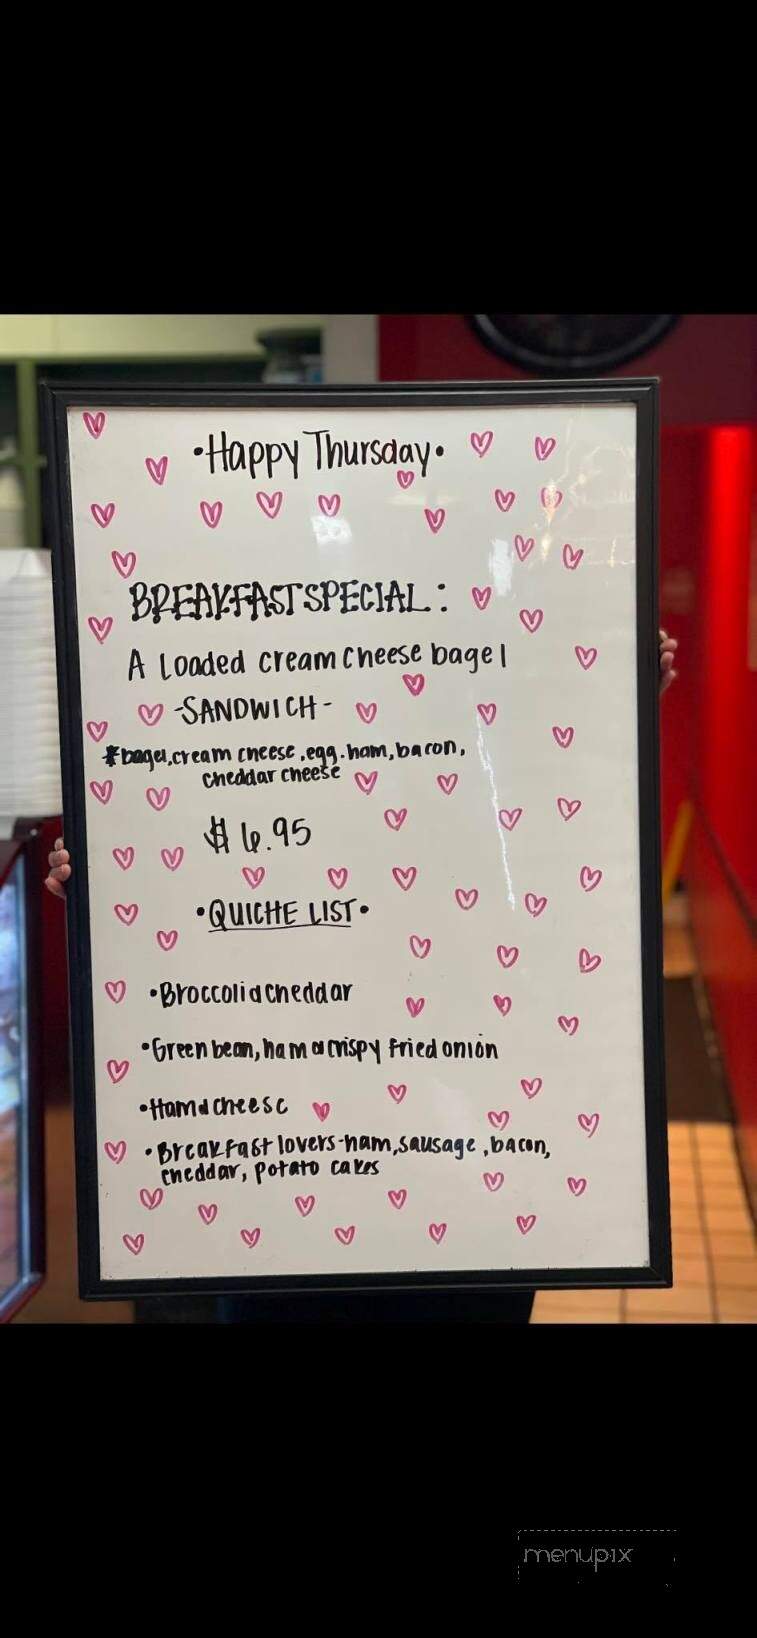 •Happy Thursday•
BREAKFAST SPECIAL:
A Loaded cream cheese bagel
-SANDWICH-
*bagel, cream cheese, egg. ham, bacon,
cheddar cheese
$6.95
•QUICHE LIST•
•Broccoli & cheddar
•Green bean, ham & crispy fried onion
•Ham & cheese
•Breakfast lovers-ham, sausage, bacon,
cheddar, potato cakes
menupix